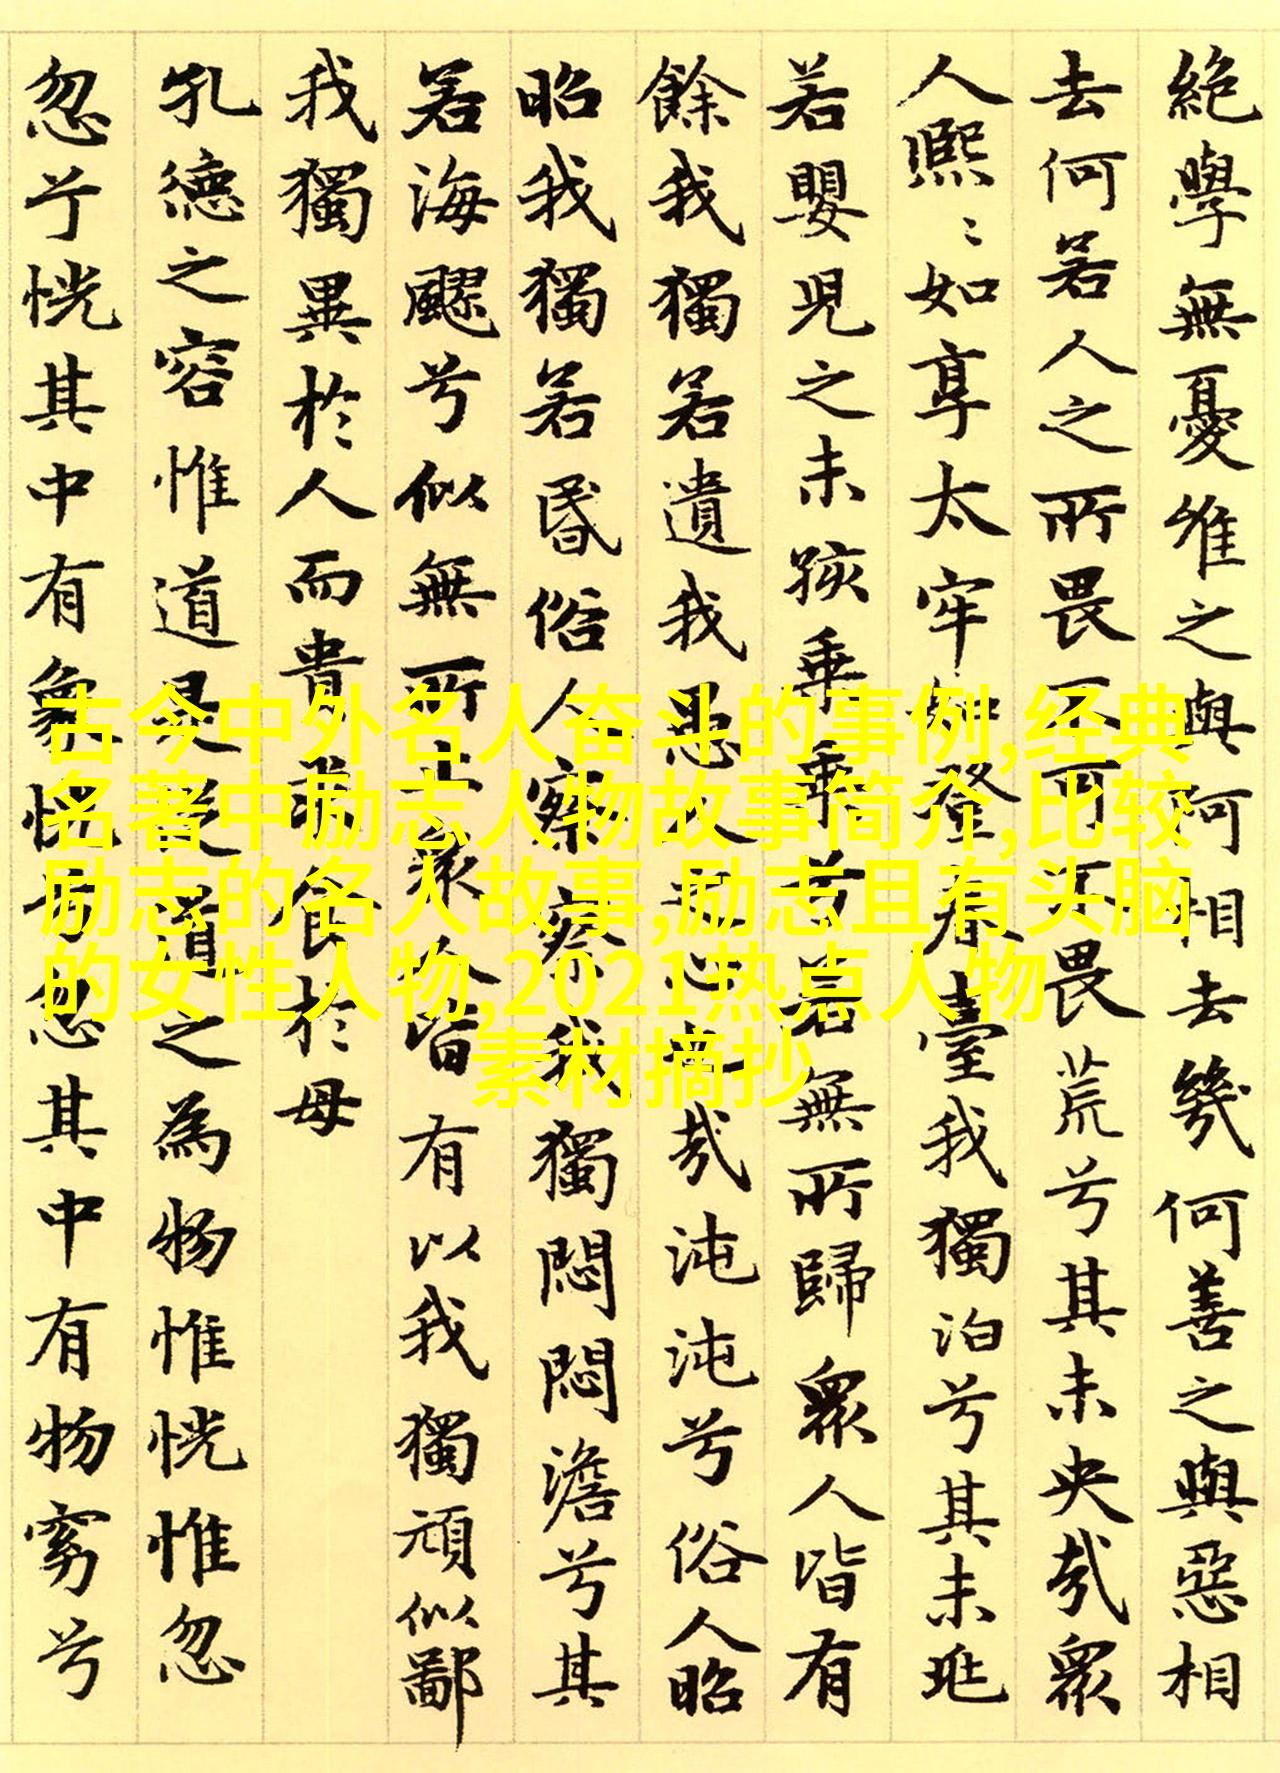 絶學無憂唯之與阿相去幾何善之與惡相
去何若人之所畏不可不畏荒兮其未央哉衆
人熙〻如享太牢如登春臺我獨泊兮其未兆
若嬰兒之未孩乘乘兮若無所歸衆人皆有
餘我獨若遺我愚人之心也哉沌沌兮俗人昭
昭我獨若昏俗人察察我獨悶悶澹兮其
若海飂兮似無所止衆人皆有以我獨頑似鄙
我獨異於人而貴求食於母
孔德之容惟道是從道之為物惟恍惟忽
忽兮恍其中有象恍兮忽其中有物窈兮
古今中外名人奋斗的事例,经典
名著中励志人物故事简介,比较
励志的名人故事,励志且有头脑
的女性人物,2021热点人物
素材摘抄